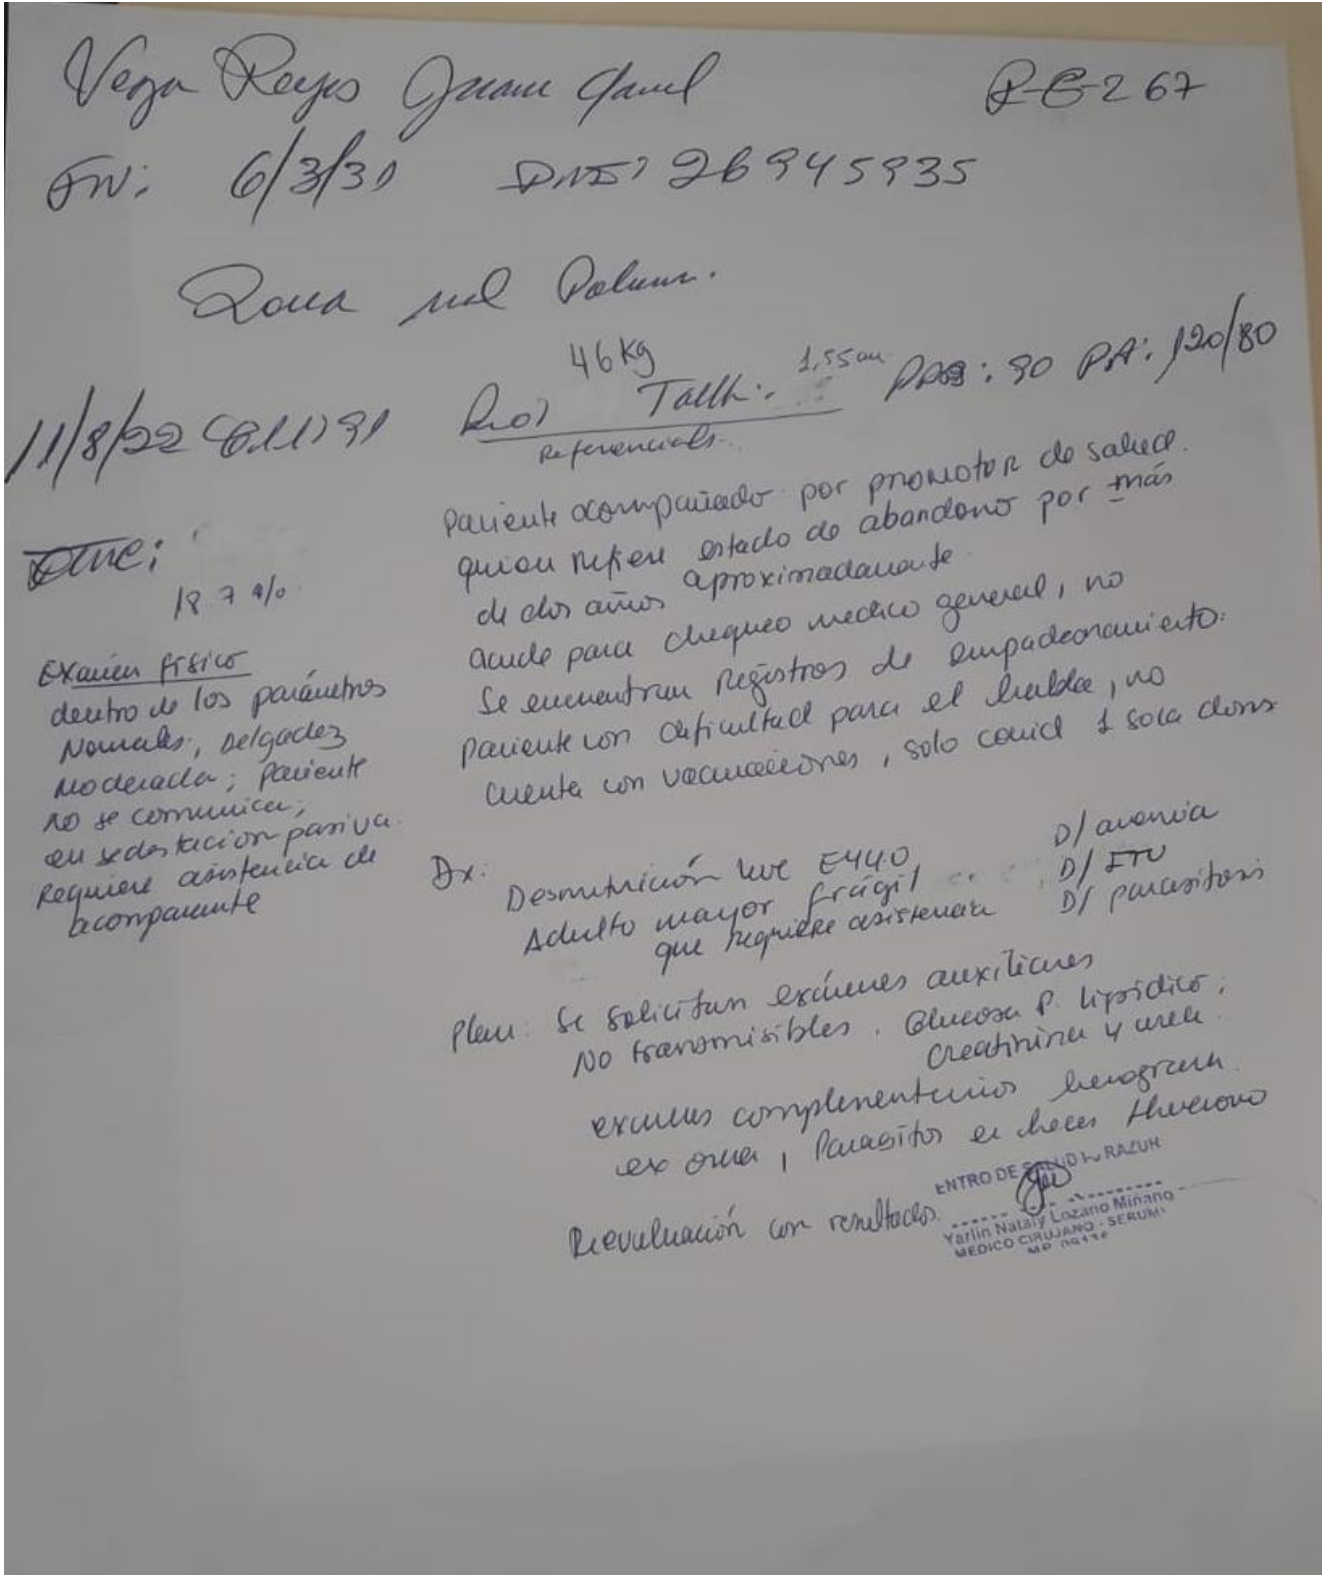 Vega Reyes Juan
267
FN: 6/3/31 DNI: 26945935
Zona
46 kg
1,55 cm
11/8/22 Talla: : 90 PA: 120/80
Referenciales
18.7 %
Examen físico
dentro de los parámetros
Normales, Delgadez
Moderada; Paciente
no se comunica;
en sedestación pasiva.
Requiere asistencia de
acompañante
Paciente acompañado por promotor de salud.
quien refiere estado de abandono por más
de dos años aproximadamente
acude para chequeo medico general, no
Se encuentran Registros de empadronamiento.
paciente con dificultad para el habla, no
cuenta con vacunaciones, solo covid 1 sola dosis
Dx:
Desnutrición leve E440
Adulto mayor frágil
que requiere asistencia
D/ anemia
D/ ITU
D/ parasitosis
Plan: Se solicitan exámenes auxiliares
No transmisibles. Glucosa P. lipídico;
Creatinina y urea.
exámenes complementarios hemograma.
ex orina, Parasitos en heces
Reevaluación con resultados.
ENTRO DE SALUD RAZUR
Yarlin Nataly Lozano Miñano
MEDICO CIRUJANO - SERUM